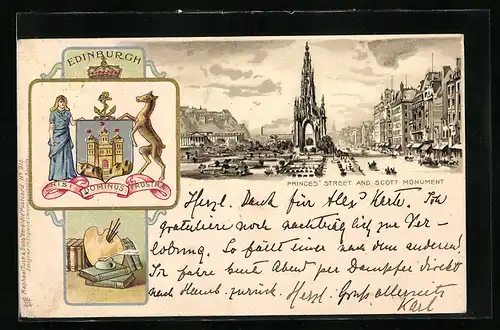 EDINBURGH
NISI DOMINUS FRUSTRA
PRINCES' STREET AND SCOTT MONUMENT
Herzl. Dank für Karte. Ich
gratuliere noch nachträglich zur Ver-
lobung. So fällt einer nach dem anderen.
Ich fahre heute Abend per Dampfer direkt
nach Hamb. zurück. Herzl. Gruss allerseits
Karl
Raphael Tuck & Sons